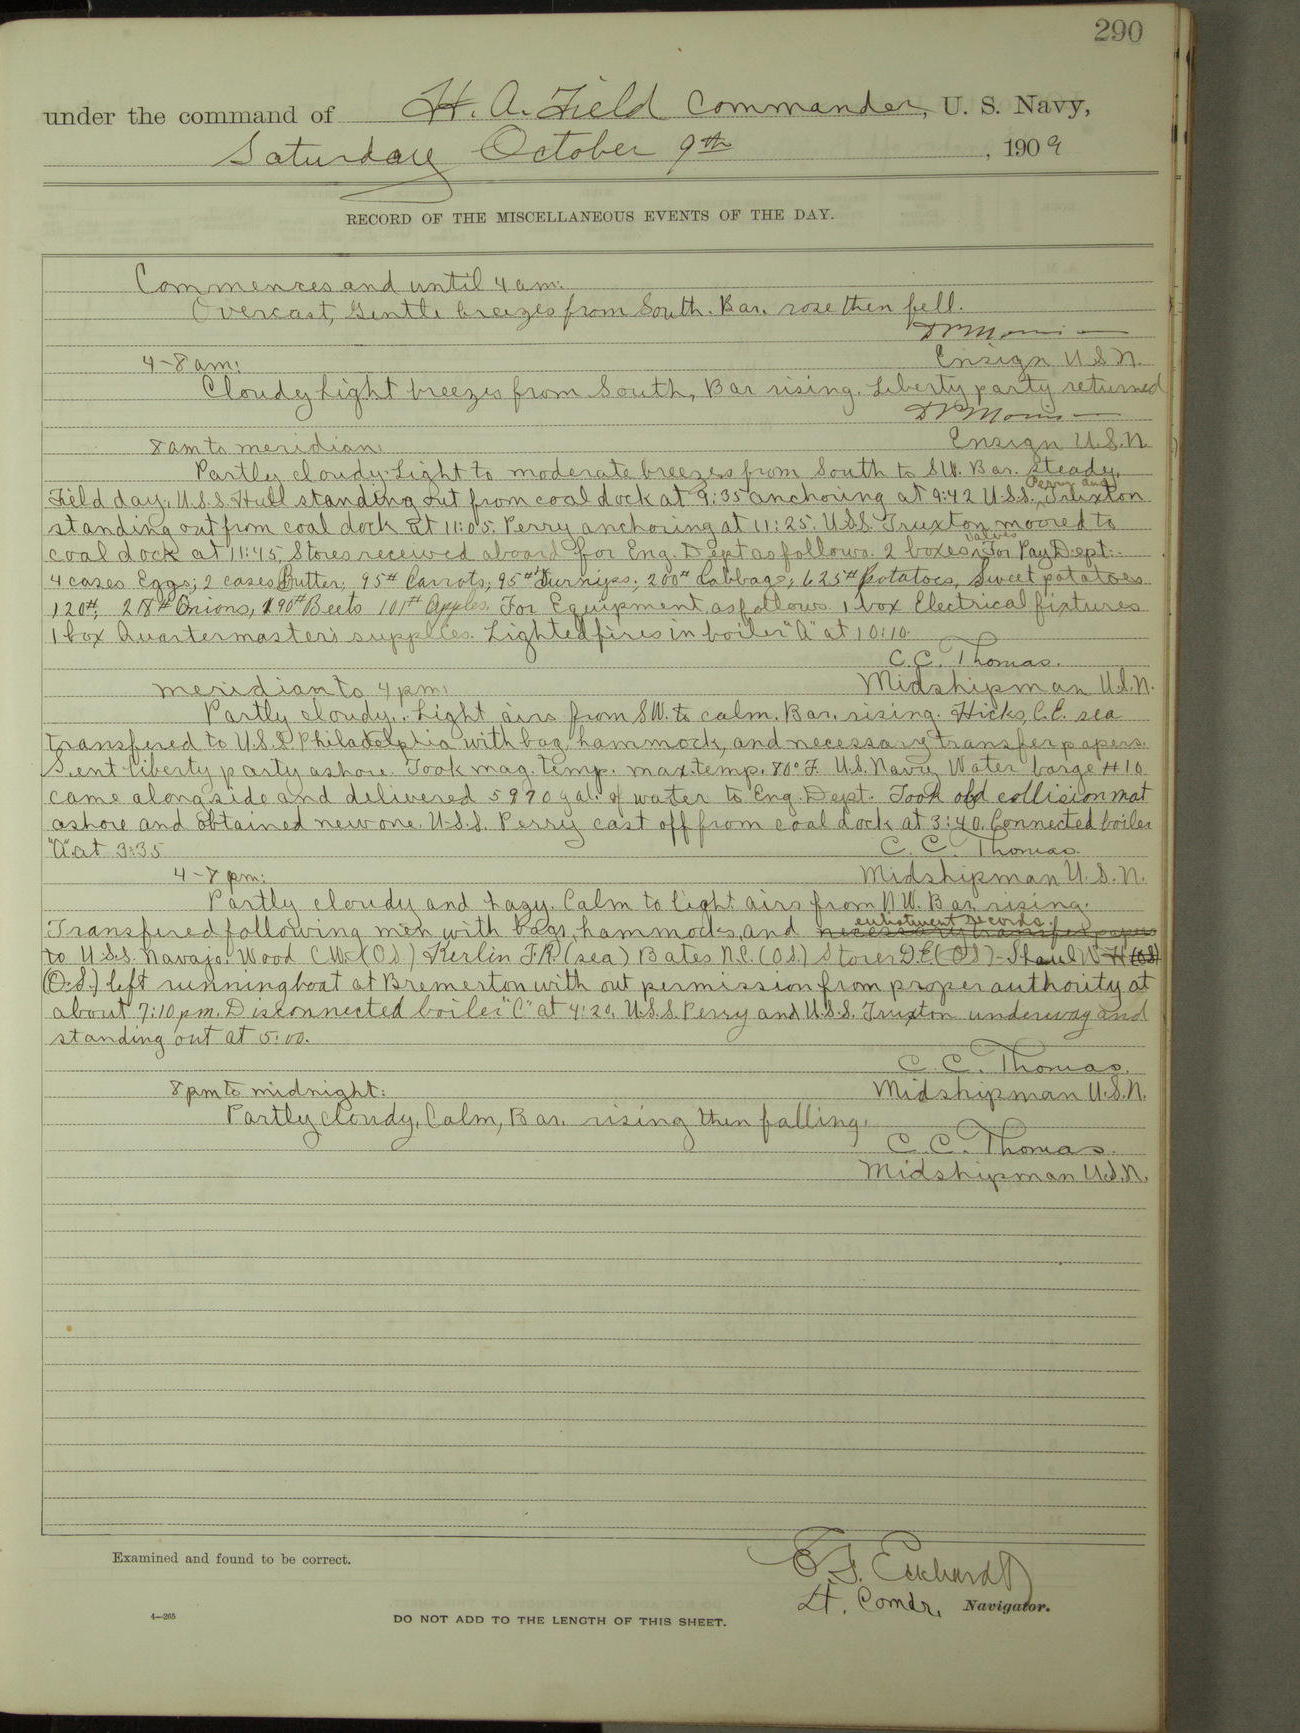 290
under the command of H. A. Field Commander, U. S. Navy,
Saturday October 9th, 1909
RECORD OF THE MISCELLANEOUS EVENTS OF THE DAY.
Commences and until 4 am:
Overcast, Gentle breezes from South. Bar. rose then fell.
Ensign U.S.N.
4-8 am:
Cloudy Light breezes from South, Bar rising. Liberty party returned
Ensign U.S.N.
8 am to meridian:
Partly cloudy. Light to moderate breezes from South to SW. Bar. steady.
Field day. U.S.S. Hull standing out from coal dock at 9:35 anchoring at 9:42 U.S.S. Perry and Truxton
standing out from coal dock at 11:05. Perry anchoring at 11:25. U.S.S. Truxton moored to
coal dock at 11:45. Stores received aboard for Eng. Dept as follows. 2 boxes valves For Pay Dept:-
4 cases Eggs; 2 cases Butter; 95# Carrots; 95# Turnips; 200# Cabbage; 625# Potatoes, Sweet potatoes
120#; 218# Onions, 190# Beets 101# Apples. For Equipment as follows 1 box Electrical fixtures
1 box Quartermaster's supplies. Lighted fires in boiler "A" at 10:10.
C.C. Thomas.
Midshipman U.S.N.
meridian to 4 pm:
Partly cloudy. Light airs from SW. to calm. Bar. rising. Hicks, C.E. sea
transfered to U.S.S. Philadelphia with bag, hammock, and necessary transfer papers.
Sent liberty party ashore. Took mag. temp. max. temp. 80° F. U.S. Navy Water barge #10
came alongside and delivered 5970 gal. of water to Eng. Dept. Took old collision mat
ashore and obtained new one. U.S.S. Perry cast off from coal dock at 3:40. Connected boiler
"A" at 3:35
C. C. Thomas.
Midshipman U.S.N.
4-8 pm:
Partly cloudy and hazy. Calm to light airs from NW. Bar. rising.
Transfered following men with bags, hammocks, and necessary transfer papers enlistment records
to U.S.S. Navajo. Wood C.W. (O.S.) Kerlin F.R. (sea) Bates N.C. (O.S.) Storer D.E. (O.S.) - Shaul, W H (OS)
(O.S.) left running boat at Bremerton with out permission from proper authority at
about 7:10 pm. Disconnected boiler "C" at 4:20. U.S.S. Perry and U.S.S. Truxton underway and
standing out at 5:00.
C. C. Thomas.
Midshipman U.S.N.
8 pm to midnight:
Partly cloudy, Calm, Bar. rising then falling.
C. C. Thomas.
Midshipman U.S.N.
Examined and found to be correct.
Eckhardt
Lt. Comdr, Navigator.
4—265
DO NOT ADD TO THE LENGTH OF THIS SHEET.